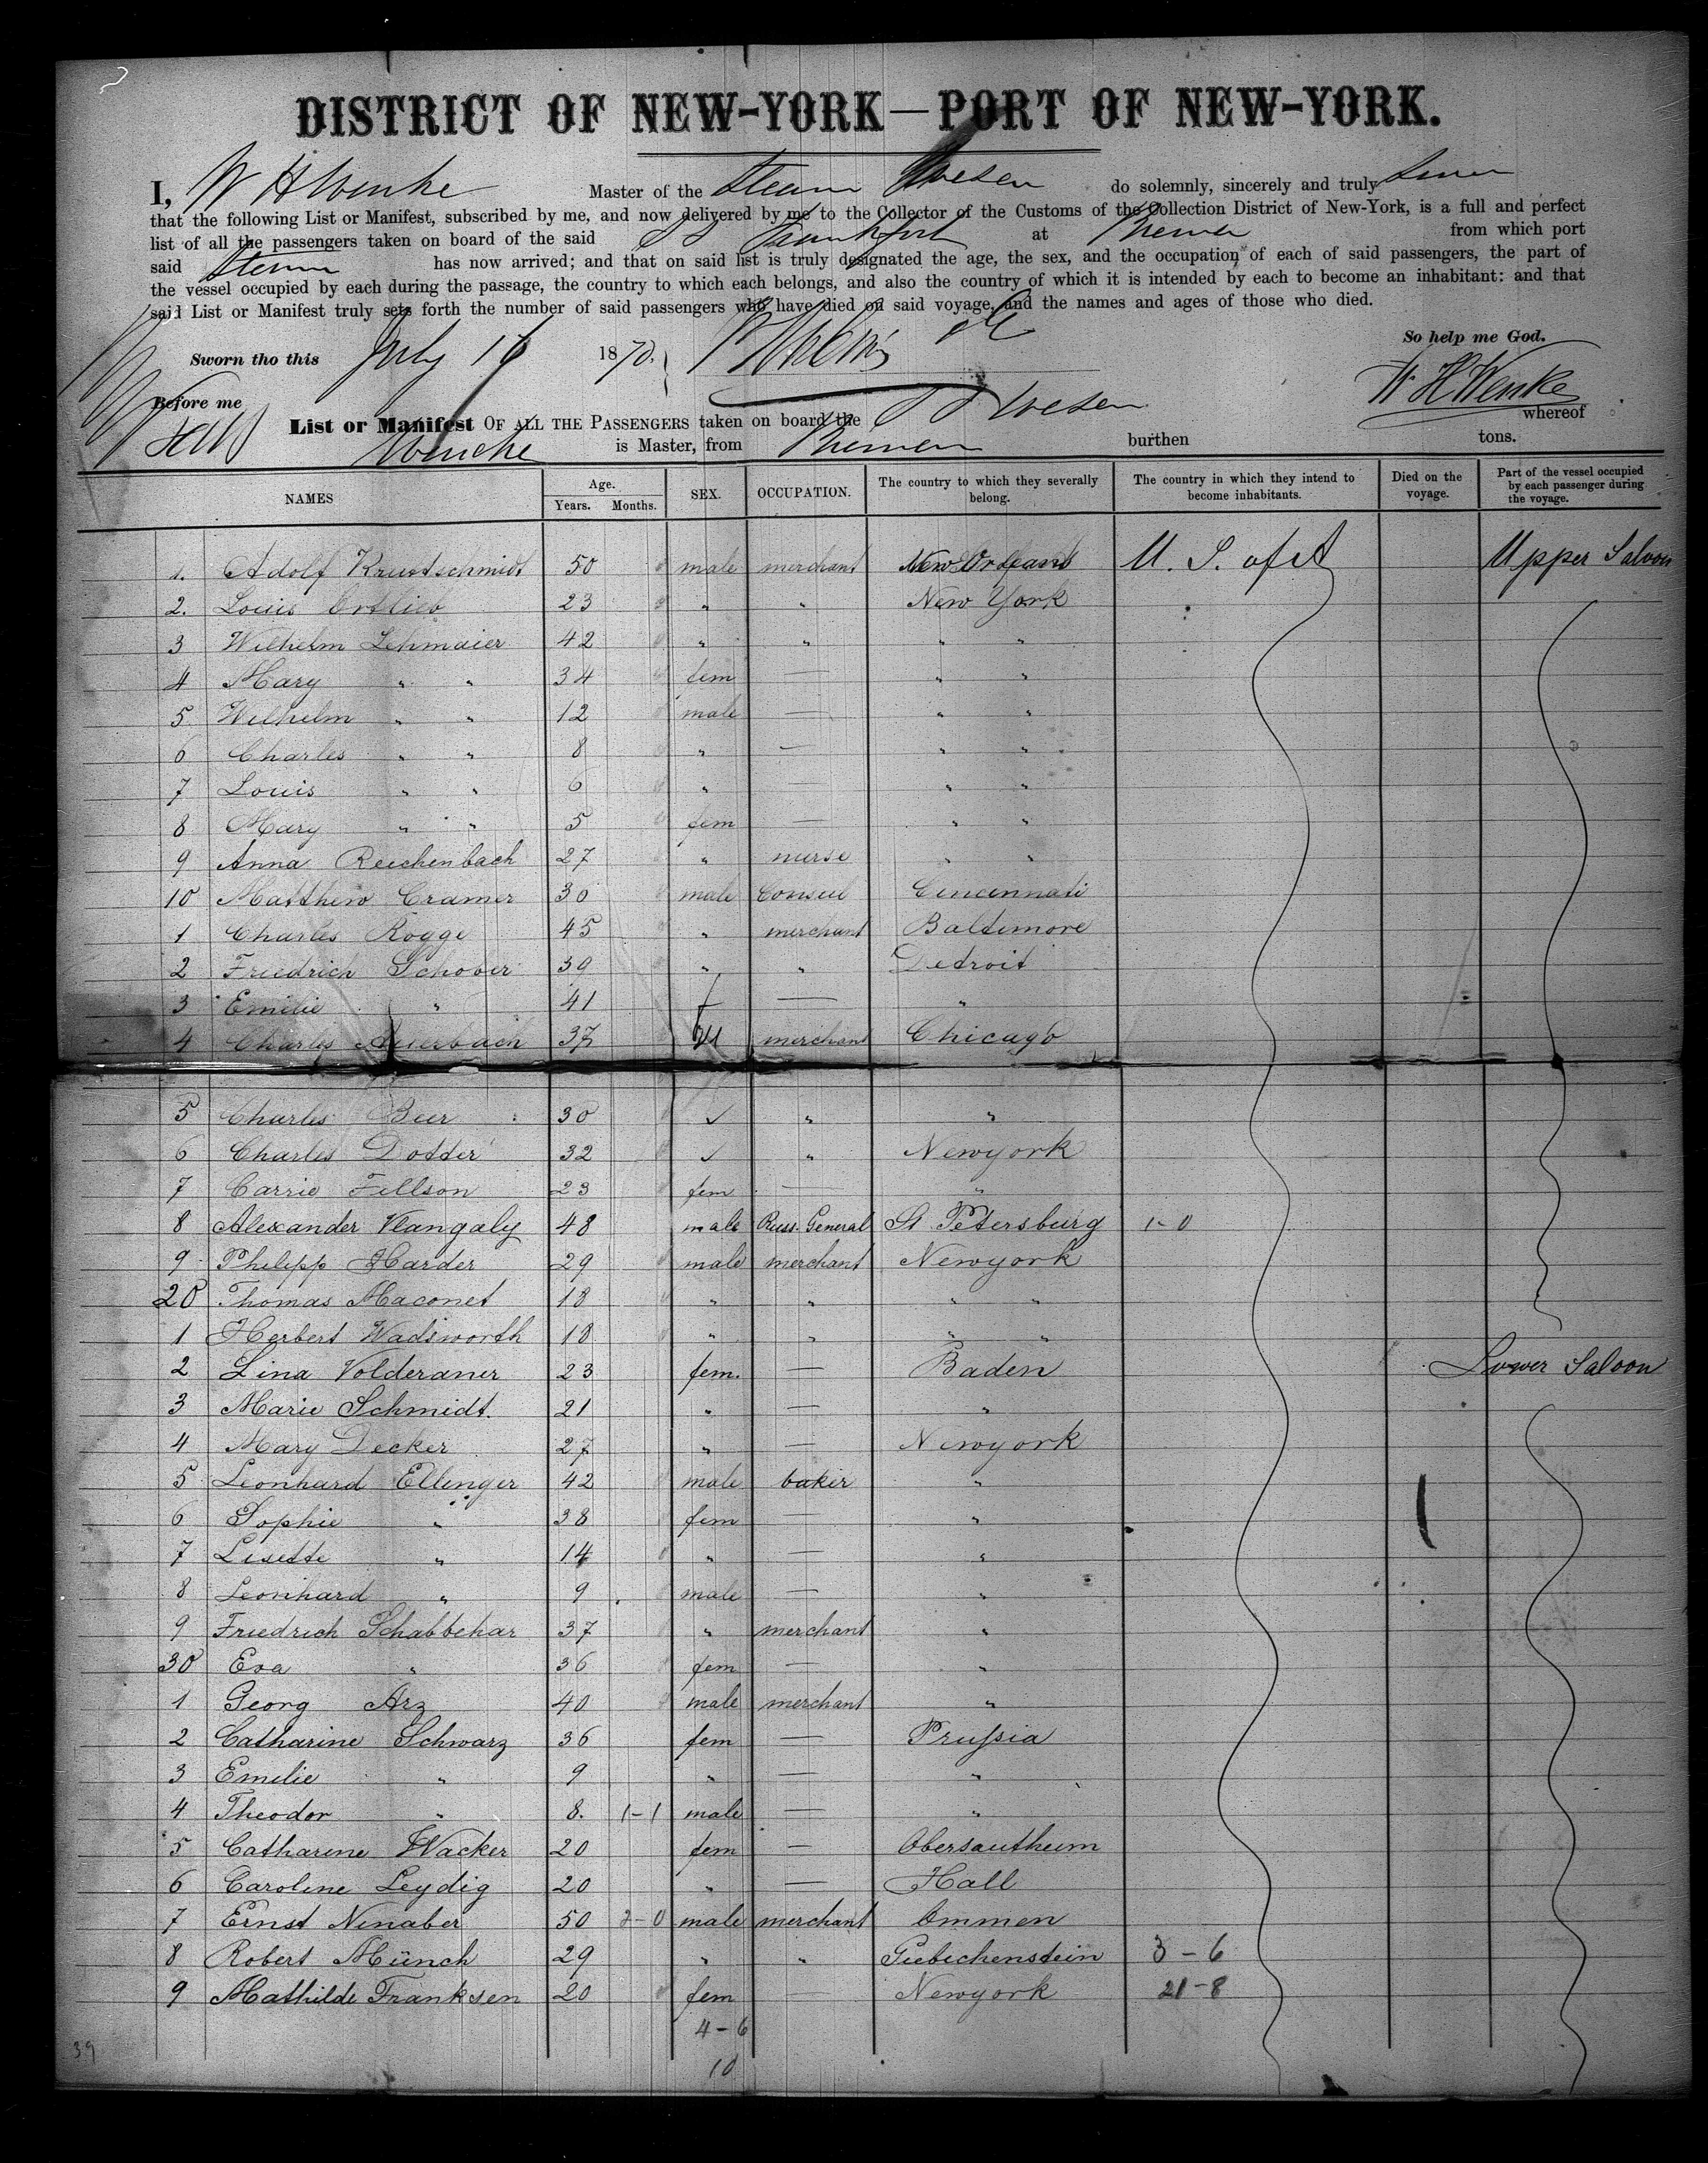 DISTRICT OF NEW-YORK—PORT OF NEW-YORK.
I, W H Wenke Master of the Steam Weser do solemnly, sincerely and truly swear
that the following List or Manifest, subscribed by me, and now delivered by me to the Collector of the Customs of the Collection District of New-York, is a full and perfect
list of all the passengers taken on board of the said S S Frankfort at Bremen from which port
said Steam has now arrived; and that on said list is truly designated the age, the sex, and the occupation of each of said passengers, the part of
the vessel occupied by each during the passage, the country to which each belongs, and also the country of which it is intended by each to become an inhabitant: and that
said List or Manifest truly sets forth the number of said passengers who have died on said voyage, and the names and ages of those who died.
So help me God.
Sworn tho this July 16 1870.
W. H. Wenke
Before me
List or Manifest OF ALL THE PASSENGERS taken on board the S S Weser whereof
Wenke is Master, from Bremen burthen tons.
NAMES Age. Years. Months. SEX. OCCUPATION. The country to which they severally belong. The country in which they intend to become inhabitants. Died on the voyage. Part of the vessel occupied by each passenger during the voyage.
1. Adolf Krustschmidt 50 male merchant New Orleans U. S. of A Upper Saloon
2. Louis Ortlieb 23 " " New York
3 Wilhelm Lehmaier 42 " " " "
4 Mary " " 34 fem — " "
5 Wilhelm " " 12 male — " "
6 Charles " " 8 " — " "
7 Louis " " 6 " — " "
8 Mary " " 5 fem — " "
9 Anna Reichenbach 27 " nurse " "
10 Matthew Cramer 30 male Consul Cincinnati
1 Charles Rogge 45 " merchant Baltimore
2 Friedrich Schober 39 " " Detroit
3 Emilie " 41 f — "
4 Charles Auerbach 37 M merchant Chicago
5 Charles Beer 30 " "
6 Charles Dotter 32 " Newyork
7 Carrie Fellson 23 fem — "
8 Alexander Vlangaly 48 male Russ. General St Petersburg 1-0
9 Philipp Harder 29 male merchant Newyork
20 Thomas Maconet 18 " " " "
1 Herbert Wadsworth 18 " " " "
2 Lina Volderaner 23 fem. — Baden Lower Saloon
3 Marie Schmidt. 21 " — "
4 Mary Decker 27 " — Newyork
5 Leonhard Ellinger 42 male baker "
6 Sophie " 38 fem — "
7 Lisette " 14 " — "
8 Leonhard " 9 male — "
9 Friedrich Schabbehar 37 " merchant "
30 Eva " 36 fem — "
1 Georg Arz 40 male merchant "
2 Catharine Schwarz 36 fem — Prußia
3 Emilie " 9 " — "
4 Theodor " 8. 1-1 male — "
5 Catharine Wacker 20 fem — Obersontheim
6 Caroline Leydig 20 " — Hall
7 Ernst Ninaber 50 2-0 male merchant Ommen
8 Robert Münch 29 " " Giebichenstein 3-6
9 Mathilde Franksen 20 fem — Newyork 21-8
4-6
39
10